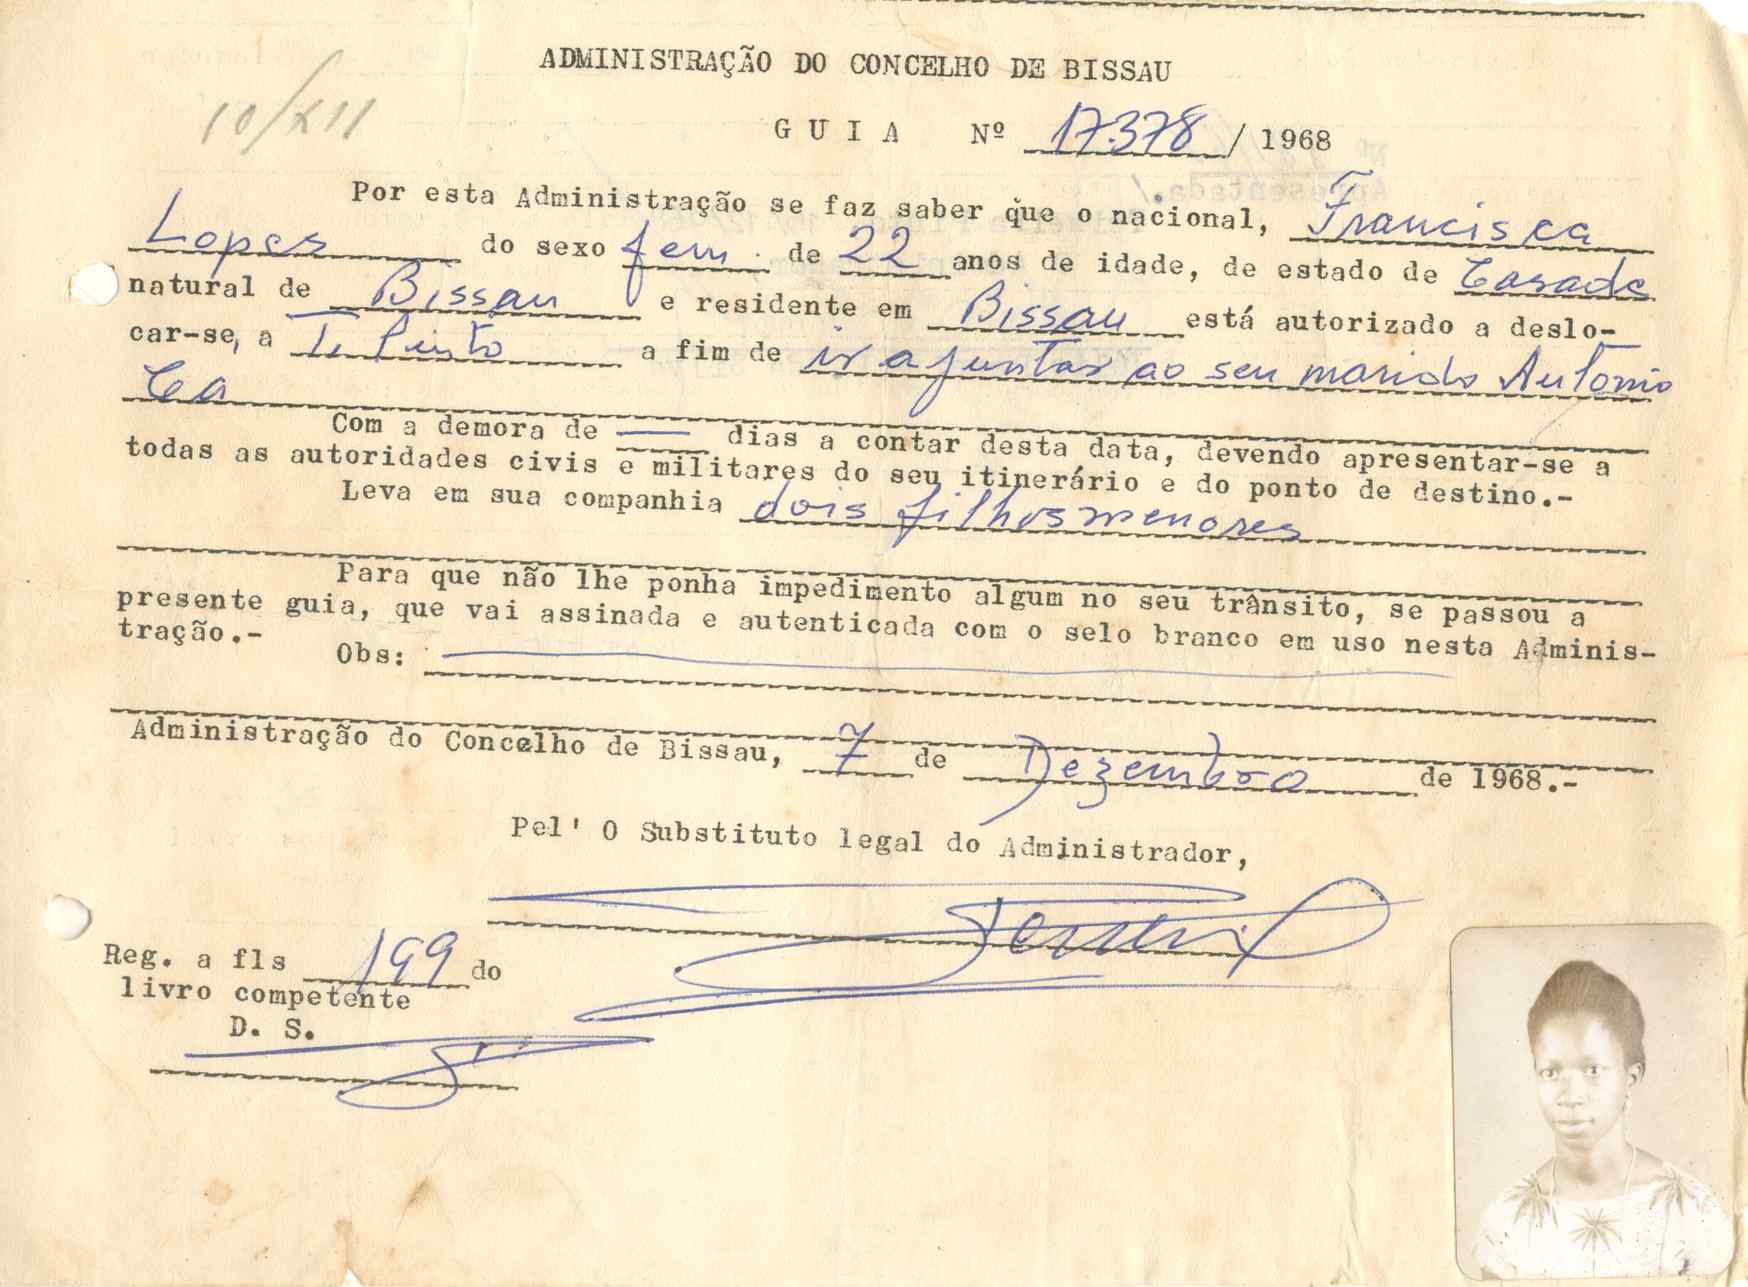 10/XII
ADMINISTRAÇÃO DO CONCELHO DE BISSAU
G U I A Nº 17.378 / 1968
Por esta Administração se faz saber que o nacional, Francisca
Lopes do sexo fem. de 22 anos de idade, de estado de Casada
natural de Bissau e residente em Bissau está autorizado a deslo-
car-se, a T. Pinto a fim de ir ajuntar ao seu marido Antonio
Ca
Com a demora de — dias a contar desta data, devendo apresentar-se a
todas as autoridades civis e militares do seu itinerário e do ponto de destino.-
Leva em sua companhia dois filhos menores
Para que não lhe ponha impedimento algum no seu trânsito, se passou a
presente guia, que vai assinada e autenticada com o selo branco em uso nesta Adminis-
tração.-
Obs:
Administração do Concelho de Bissau, 7 de Dezembro de 1968.-
Pel' O Substituto legal do Administrador,
Reg. a fls 199 do
livro competente
D. S.